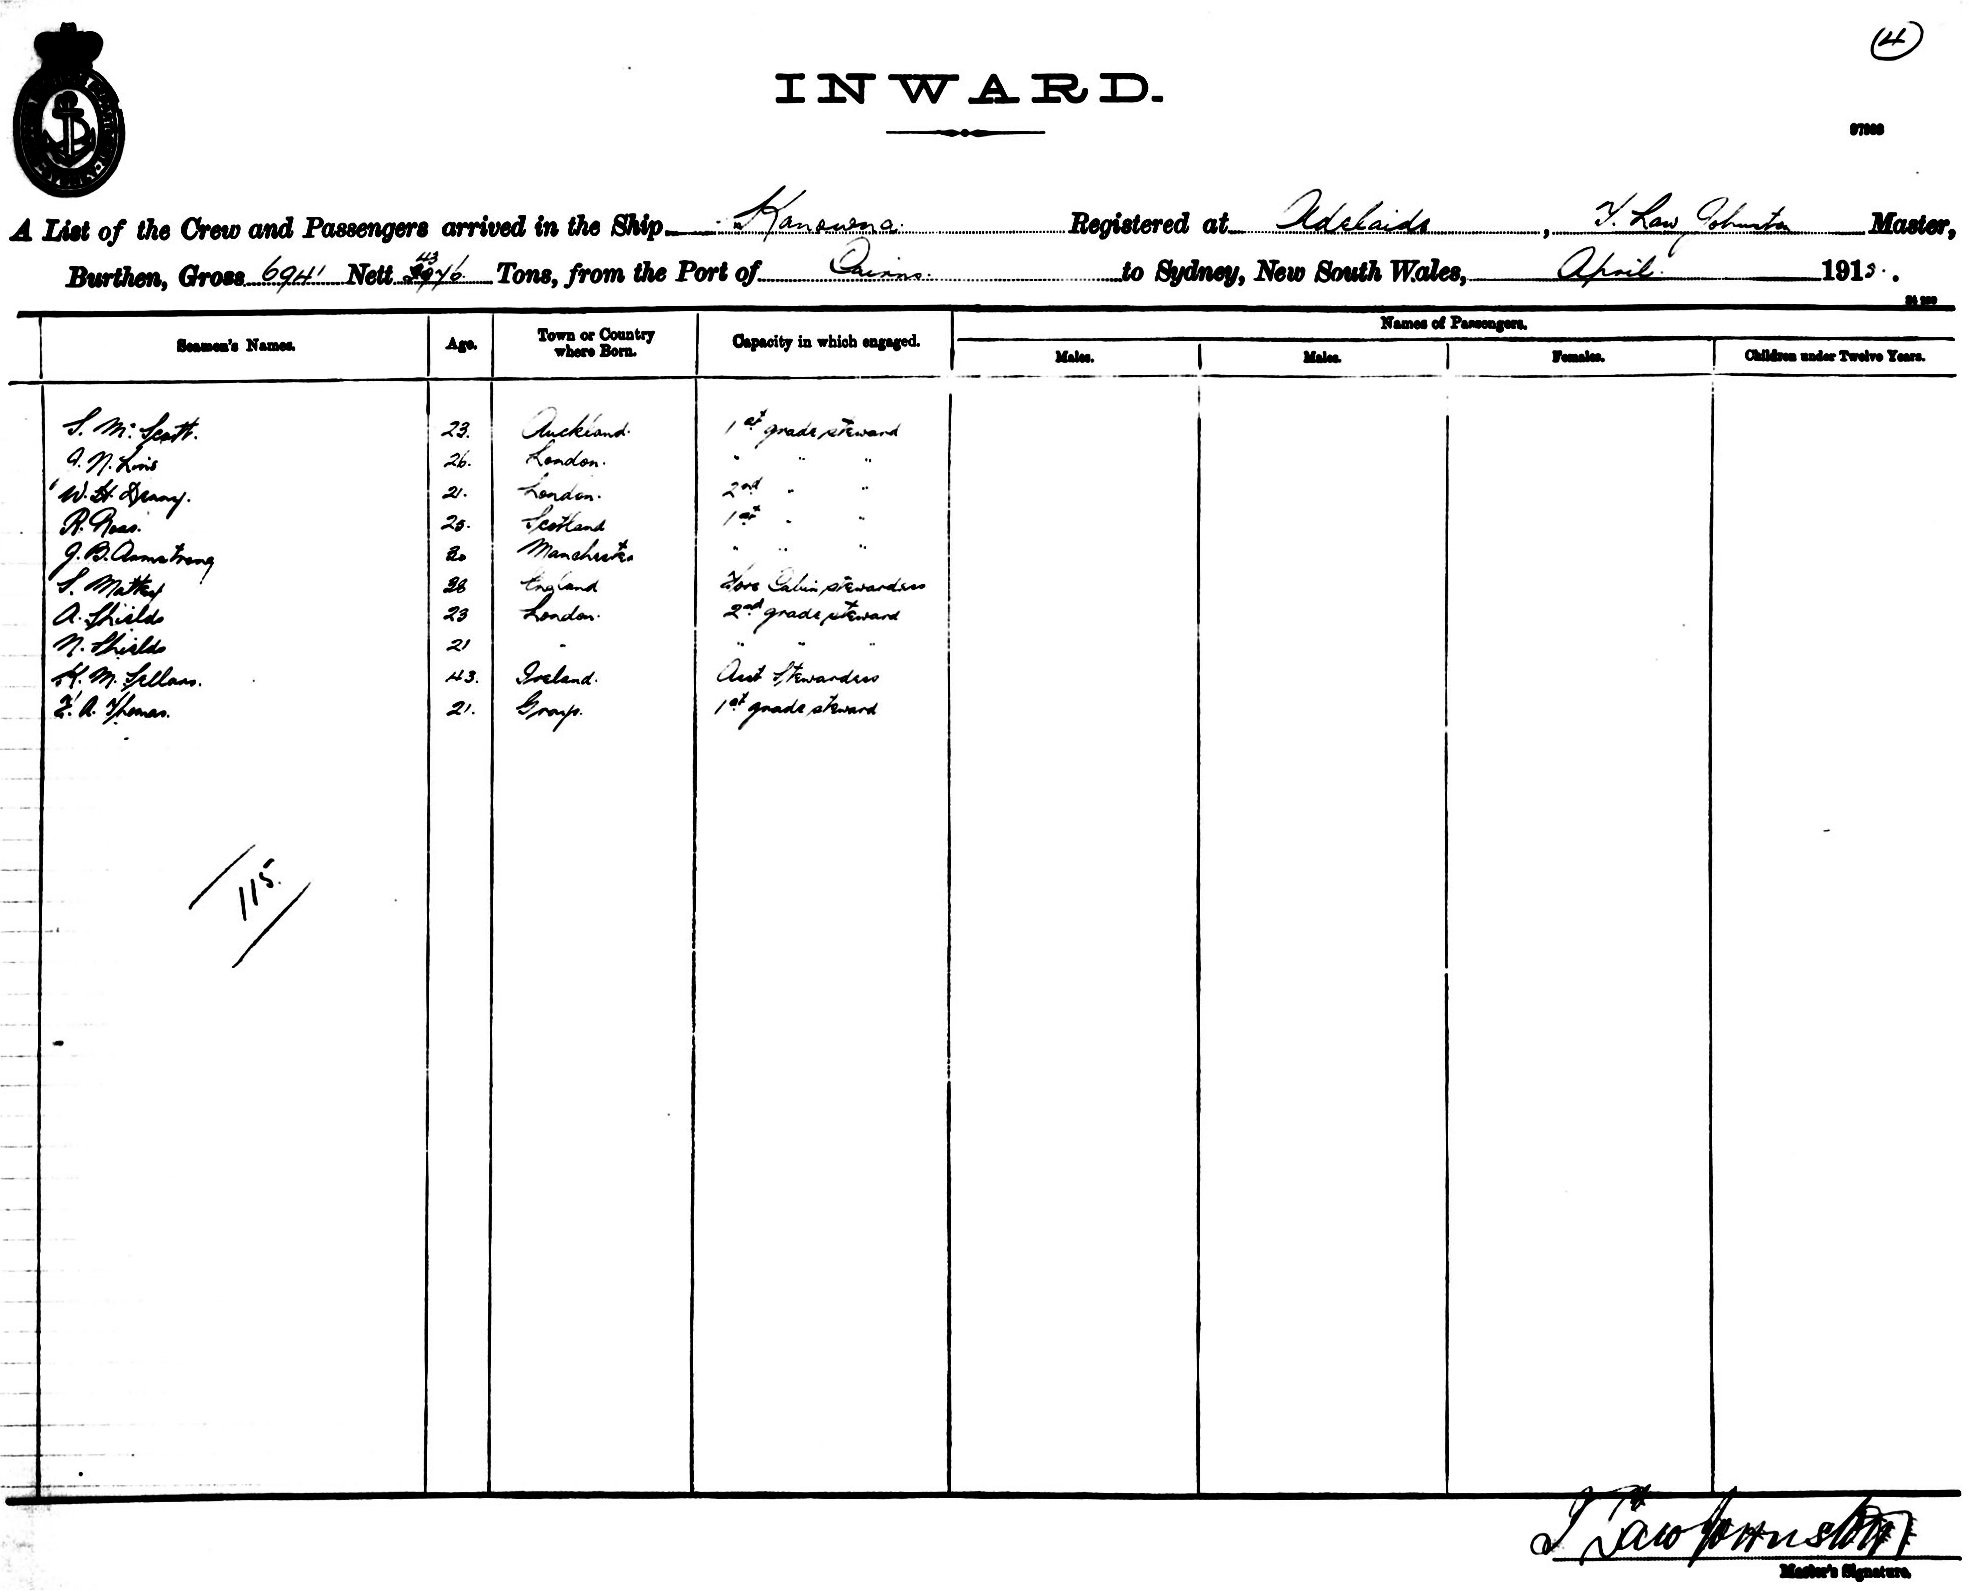 (4)
INWARD.
A List of the Crew and Passengers arrived in the Ship Kanowna. Registered at Adelaide, T. Law Johnston Master,
Burthen, Gross 6941 Nett 43 Tons, from the Port of Cairns. to Sydney, New South Wales, April. 191
Names of Passengers.
Seamen's Names. Age. Town or Country where Born. Capacity in which engaged. Males. Males. Females. Children under Twelve Years.
S. Mc Scott. 23. Auckland. 1st grade steward
N. 26. London. " " "
W. H. Denny. 21. London. 2nd " "
R. Ross. Scotland 1st " "
J. B. Armstrong Manchester " " "
S. England Fore Cabin stewardess
A. Shields 23 London. 2nd grade steward
N. Shields 21 " " " "
K. M. Sellars. 43. Ireland. Asst Stewardess
F. A. Thomas. 21. 1st grade steward
115.
T Law Johnston
Master's Signature.